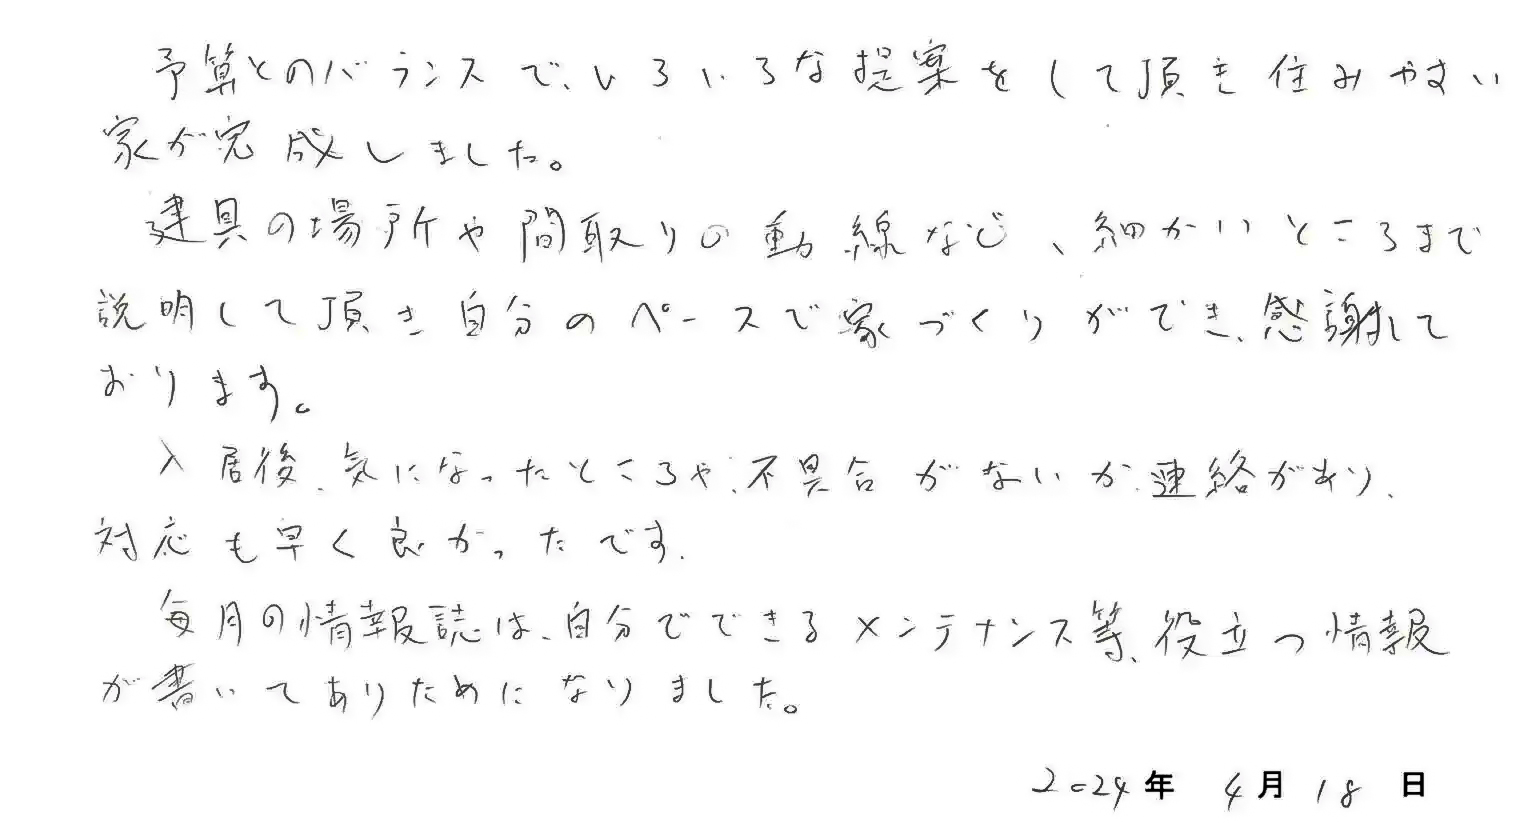 予算とのバランスで、いろいろな提案をして頂き住みやすい
家が完成しました。
建具の場所や間取りの動線など、細かいところまで
説明して頂き自分のペースで家づくりができ、感謝して
おります。
入居後、気になったところや、不具合がないか、連絡があり、
対応も早く良かったです。
毎月の情報誌は、自分でできるメンテナンス等、役立つ情報
が書いてありためになりました。
2024年 4月 18 日